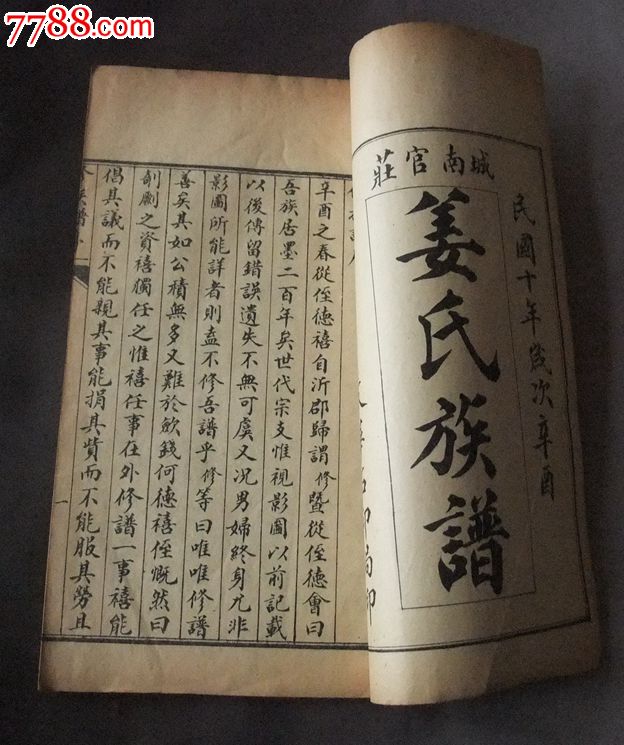 7788.com
民國十年歲次辛酉
城南官莊
姜氏族譜
辛酉之春從侄德禧自沂郡歸謂修暨從侄德會曰
吾族居墨二百年矣世代宗支惟視影圖以前記載
以後傳留錯誤遺失不無可虞又況男婦終身尤非
影圖所能詳者則盍不修吾譜乎修等曰唯唯修譜
善矣其如公積無多又難於飲錢何德禧侄慨然曰
剞劂之資禧獨任之惟禧任事在外修譜一事禧能
倡其議而不能親其事能捐其貲而不能服其勞且
一